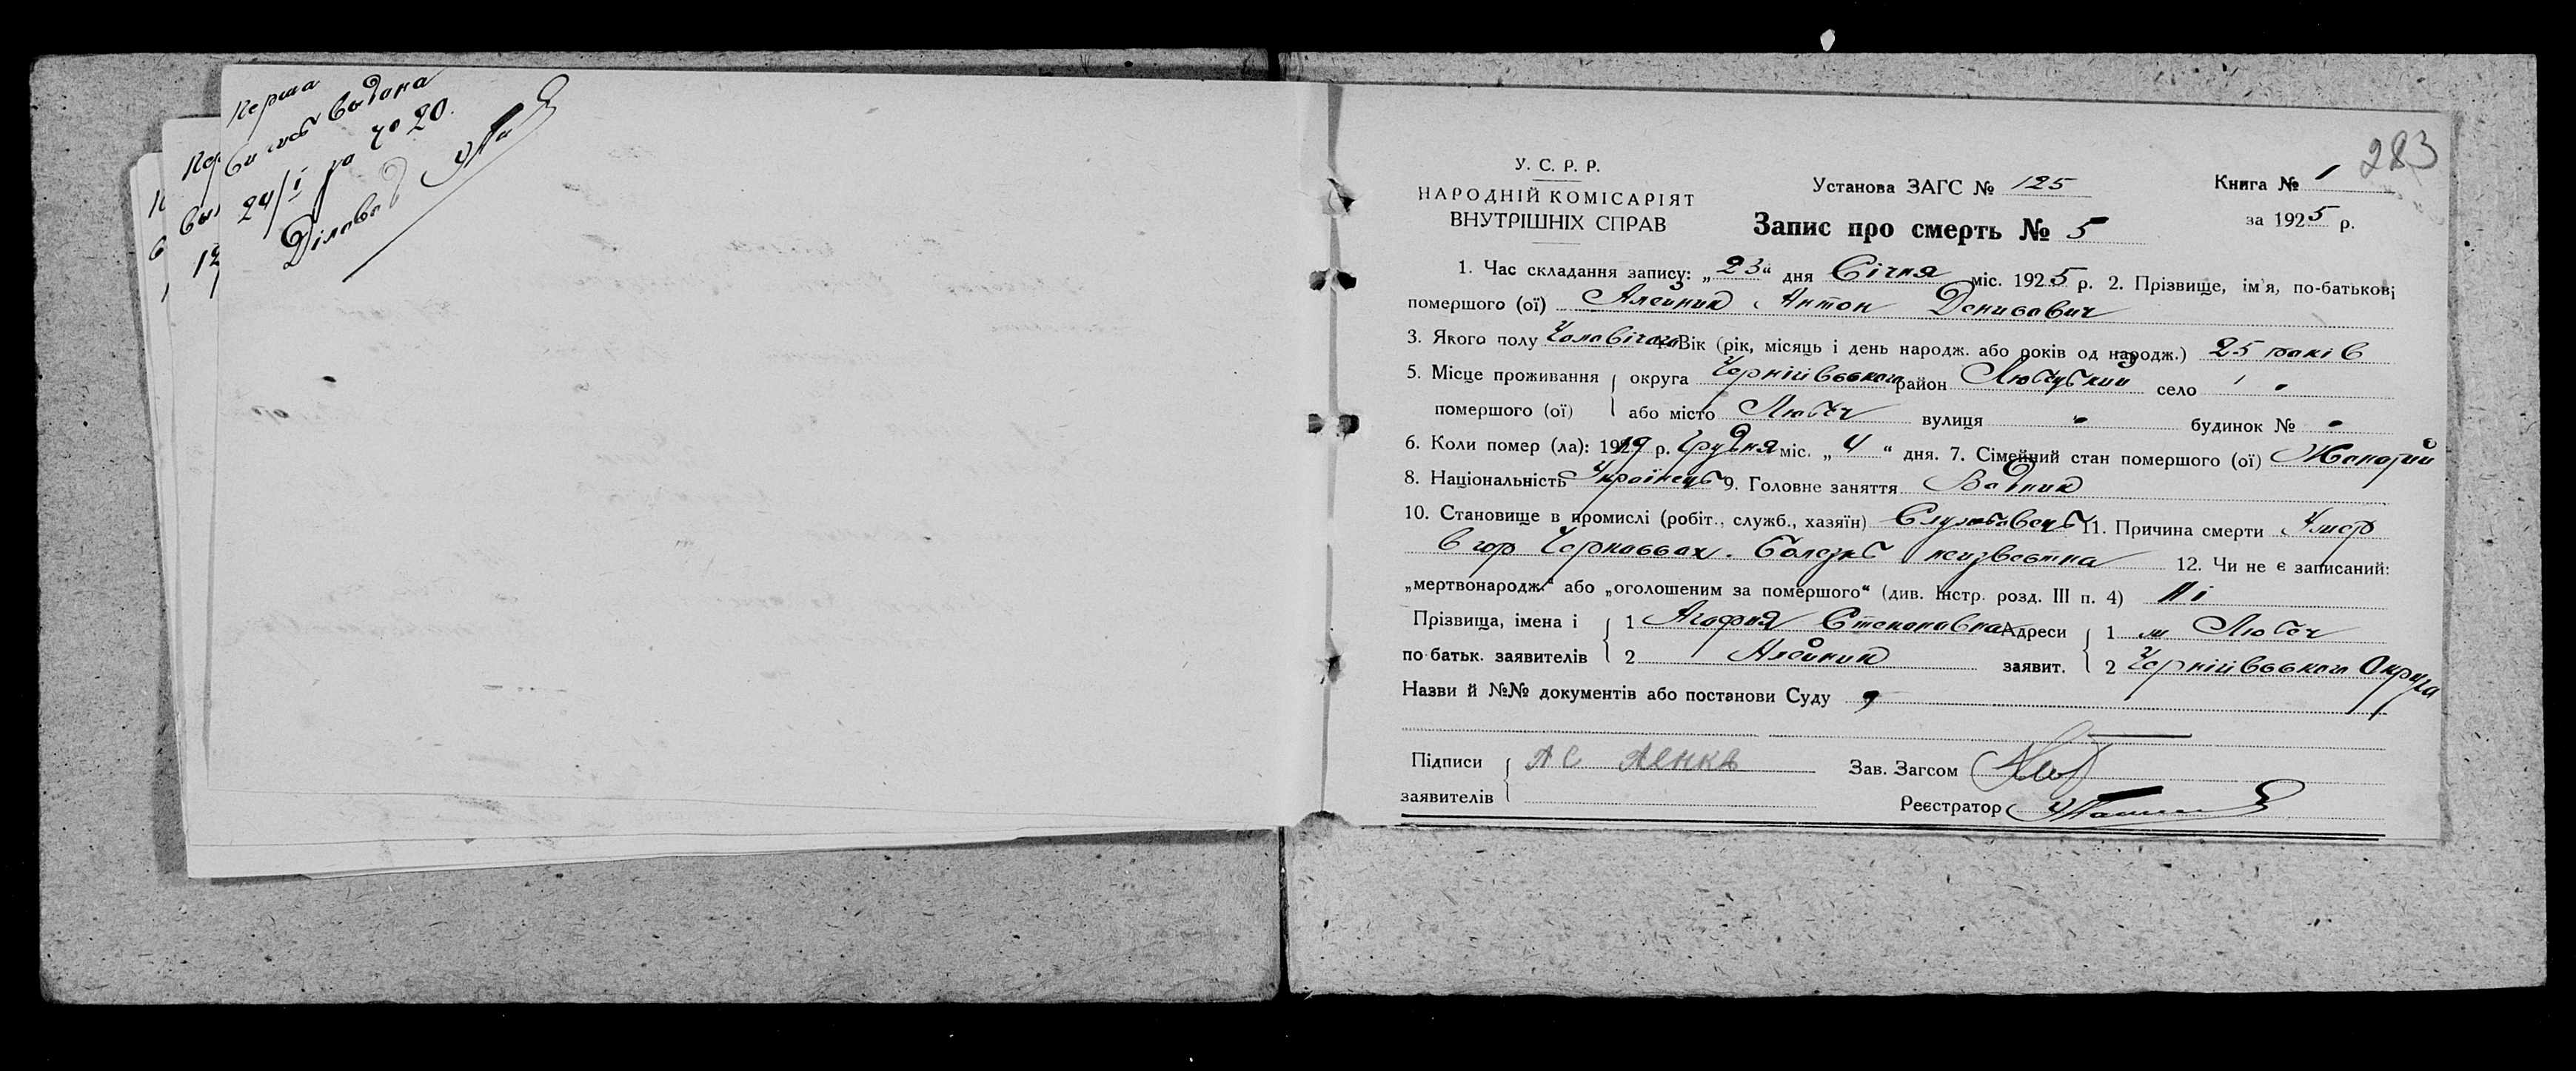 Перша
Ви пись видана
24/I за № 20.
Діловод
283
У. С. Р. Р.
НАРОДНІЙ КОМІСАРІЯТ
ВНУТРІШНІХ СПРАВ
Установа ЗАГС № 125
Книга № 1
Запис про смерть № 5
за 1925 р.
1. Час складання запису: „23“ дня Січня міс. 1925 р. 2. Прізвище, ім'я, по-батькові
помершого (ої) Алейник Антон Денисович
3. Якого полу Чоловічого 4. Вік (рік, місяць і день народж. або років од народж.) 25 років
5. Місце проживання округа Чернігівського район Любецький село "
помершого (ої) або місто Любеч вулиця " будинок № "
6. Коли помер (ла): 1919 р. Грудня міс. „4“ дня. 7. Сімейний стан помершого (ої) Жонатий
8. Національність Українець 9. Головне заняття Водник
10. Становище в промислі (робіт., служб., хазяїн) Службовець 11. Причина смерти Умер
в гор Черкассах. Болезнь неизвестна 12. Чи не є записаний:
„мертвонародж.“ або „оголошеним за помершого“ (див. Інстр. розд. III п. 4) Ні
Прізвища, імена і 1 Агафия Степановна Адреси 1 м Любеч
по батьк. заявителів 2 Алейник заявит. 2 Чернігівського Округа
Назви й №№ документів або постанови Суду
Підписи АС Аенкь Зав. Загсом
заявителів Реєстратор